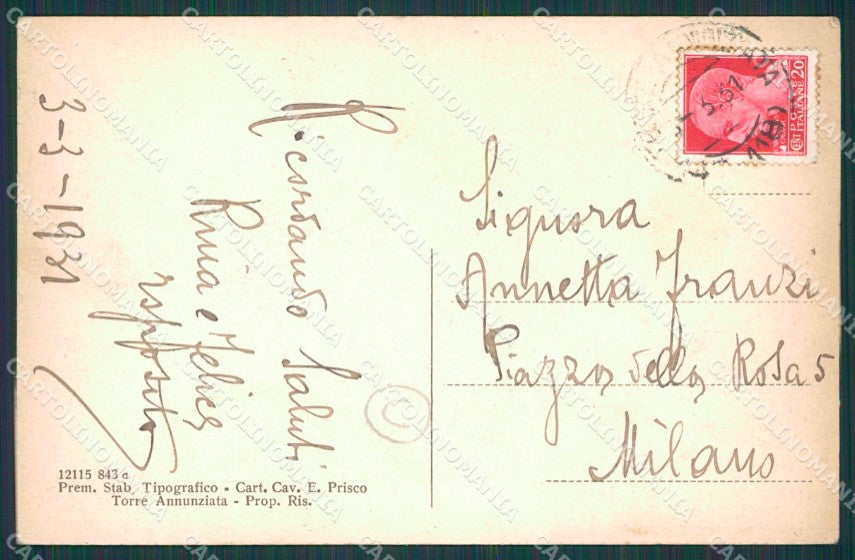 3-3-1931
Ricordando Saluti
Rina e Felice
Esposito
12115 843 a
Prem. Stab. Tipografico - Cart. Cav. E. Prisco
Torre Annunziata - Prop. Ris.
CENT. 20
P. ITALIANE
Signora
Annetta Franzi
Piazza della Rosa 5
Milano
©
CARTOLINOMANIA